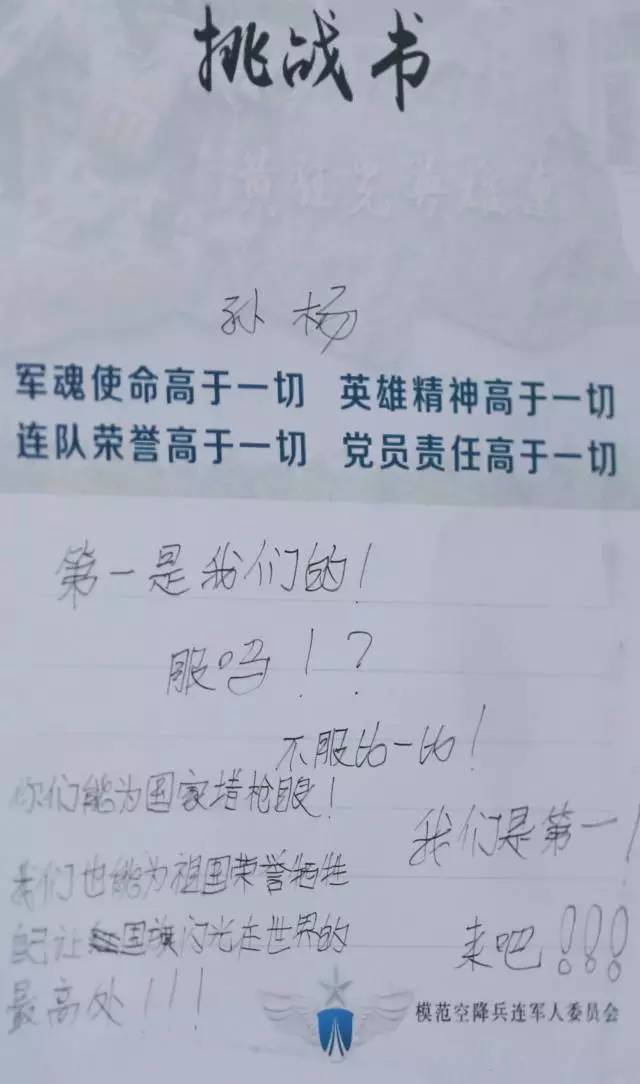 挑战书
黄继光英雄连
孙杨
军魂使命高于一切 英雄精神高于一切
连队荣誉高于一切 党员责任高于一切
第一是我们的！
服吗！？
不服比一比！
你们能为国家堵枪眼！
我们是第一！
我们也能为祖国荣誉牺牲
自己让国旗闪光在世界的
来吧！！！
最高处！！！
模范空降兵连军人委员会